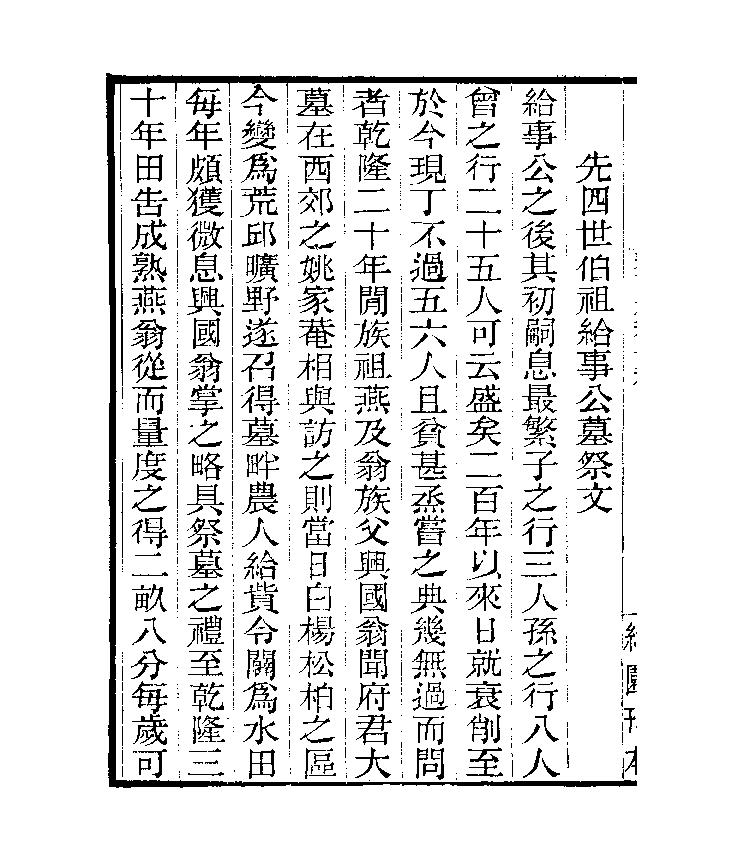 先四世伯祖給事公墓祭文
給事公之後其初嗣息最繁子之行三人孫之行八人
曾之行二十五人可云盛矣二百年以來日就衰削至
於今現丁不過五六人且貧甚烝嘗之典幾無過而問
者乾隆二十年閒族祖燕及翁族父興國翁聞府君大
墓在西郊之姚家菴相與訪之則當日白楊松柏之區
今變爲荒邱曠野遂召得墓畔農人給貲令關爲水田
每年頗獲微息興國翁掌之略具祭墓之禮至乾隆三
十年田告成熟燕翁從而量度之得二畝八分每歲可